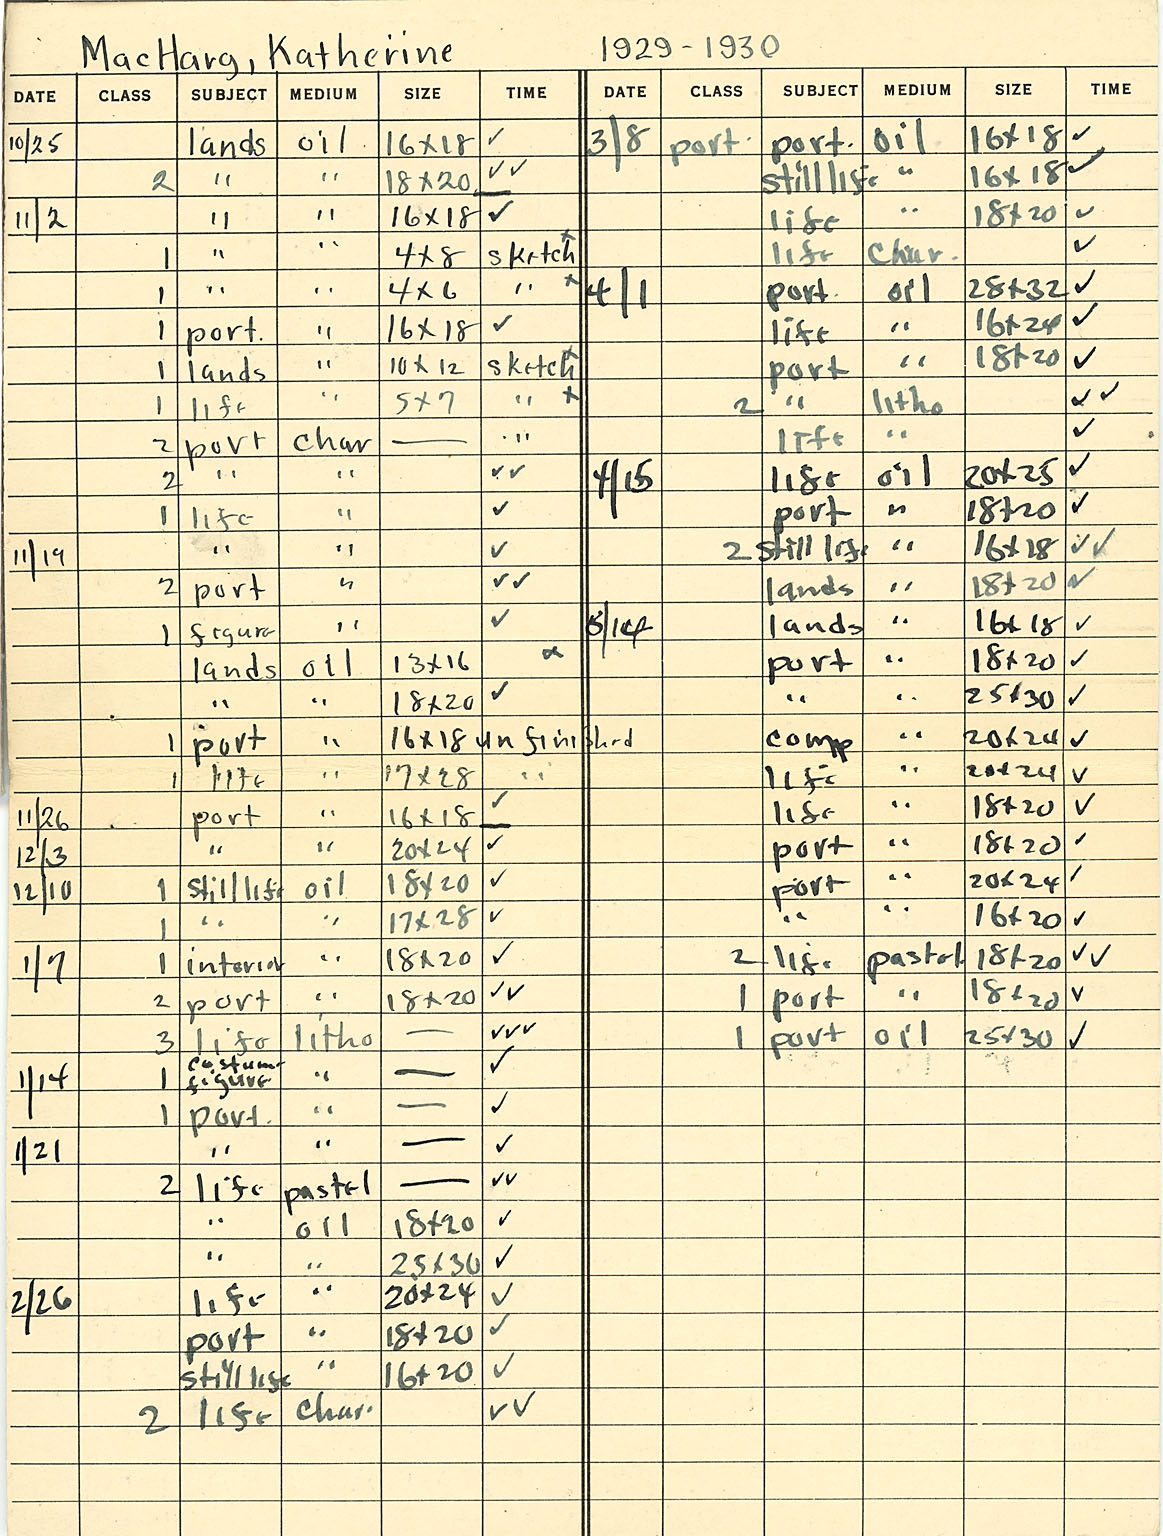 MacHarg, Katherine 1929-1930
DATE CLASS SUBJECT MEDIUM SIZE TIME
10/25 lands oil 16x18 ✓
2 " " 18x20 ✓✓
11/2 " " 16x18 ✓
1 " " 4x8 sketch x
1 " " 4x6 " x
1 port. " 16x18 ✓
1 lands " 10x12 sketch x
1 life " 5x7 " x
2 port char — "
2 " " ✓✓
1 life " ✓
11/19 " " ✓
2 port " ✓✓
1 figure " ✓
lands oil 13x16 x
" " 18x20 ✓
1 port " 16x18 unfinished
1 life " 17x28 "
11/26 port " 16x18 ✓
12/3 " " 20x24 ✓
12/10 1 still life oil 18x20 ✓
1 " " 17x28 ✓
1/7 1 interior " 18x20 ✓
2 port " 18x20 ✓✓
3 life litho — ✓✓✓
1/14 1 costume figure " — ✓
1 port. " — ✓
1/21 " " — ✓
2 life pastel — ✓✓
" oil 18x20 ✓
" " 25x30 ✓
2/26 life " 20x24 ✓
port " 18x20 ✓
still life " 16x20 ✓
2 life char. ✓✓
DATE CLASS SUBJECT MEDIUM SIZE TIME
3/8 port. port. oil 16x18 ✓
still life " 16x18 ✓
life " 18x20 ✓
life char. ✓
4/1 port oil 28x32 ✓
life " 16x24 ✓
port " 18x20 ✓
2 " litho ✓✓
life " ✓
4/15 life oil 20x25 ✓
port " 18x20 ✓
2 still life " 16x18 ✓✓
lands " 18x20 ✓
5/14 lands " 16x18 ✓
port " 18x20 ✓
" " 25x30 ✓
comp " 20x24 ✓
life " 20x24 ✓
life " 18x20 ✓
port " 18x20 ✓
port " 20x24 ✓
" " 16x20 ✓
2 life pastel 18x20 ✓✓
1 port " 18x20 ✓
1 port oil 25x30 ✓